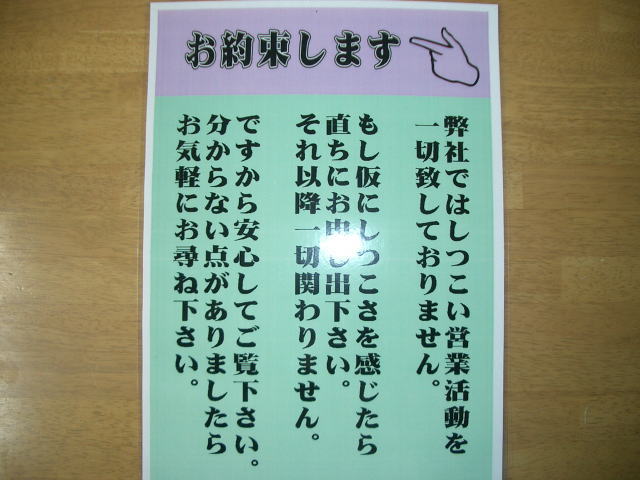 お約束します
弊社ではしつこい営業活動を
一切致しておりません。
もし仮にしつこさを感じたら
直ちにお申し出下さい。
それ以降一切関わりません。
ですから安心してご覧下さい。
分からない点がありましたら
お気軽にお尋ね下さい。